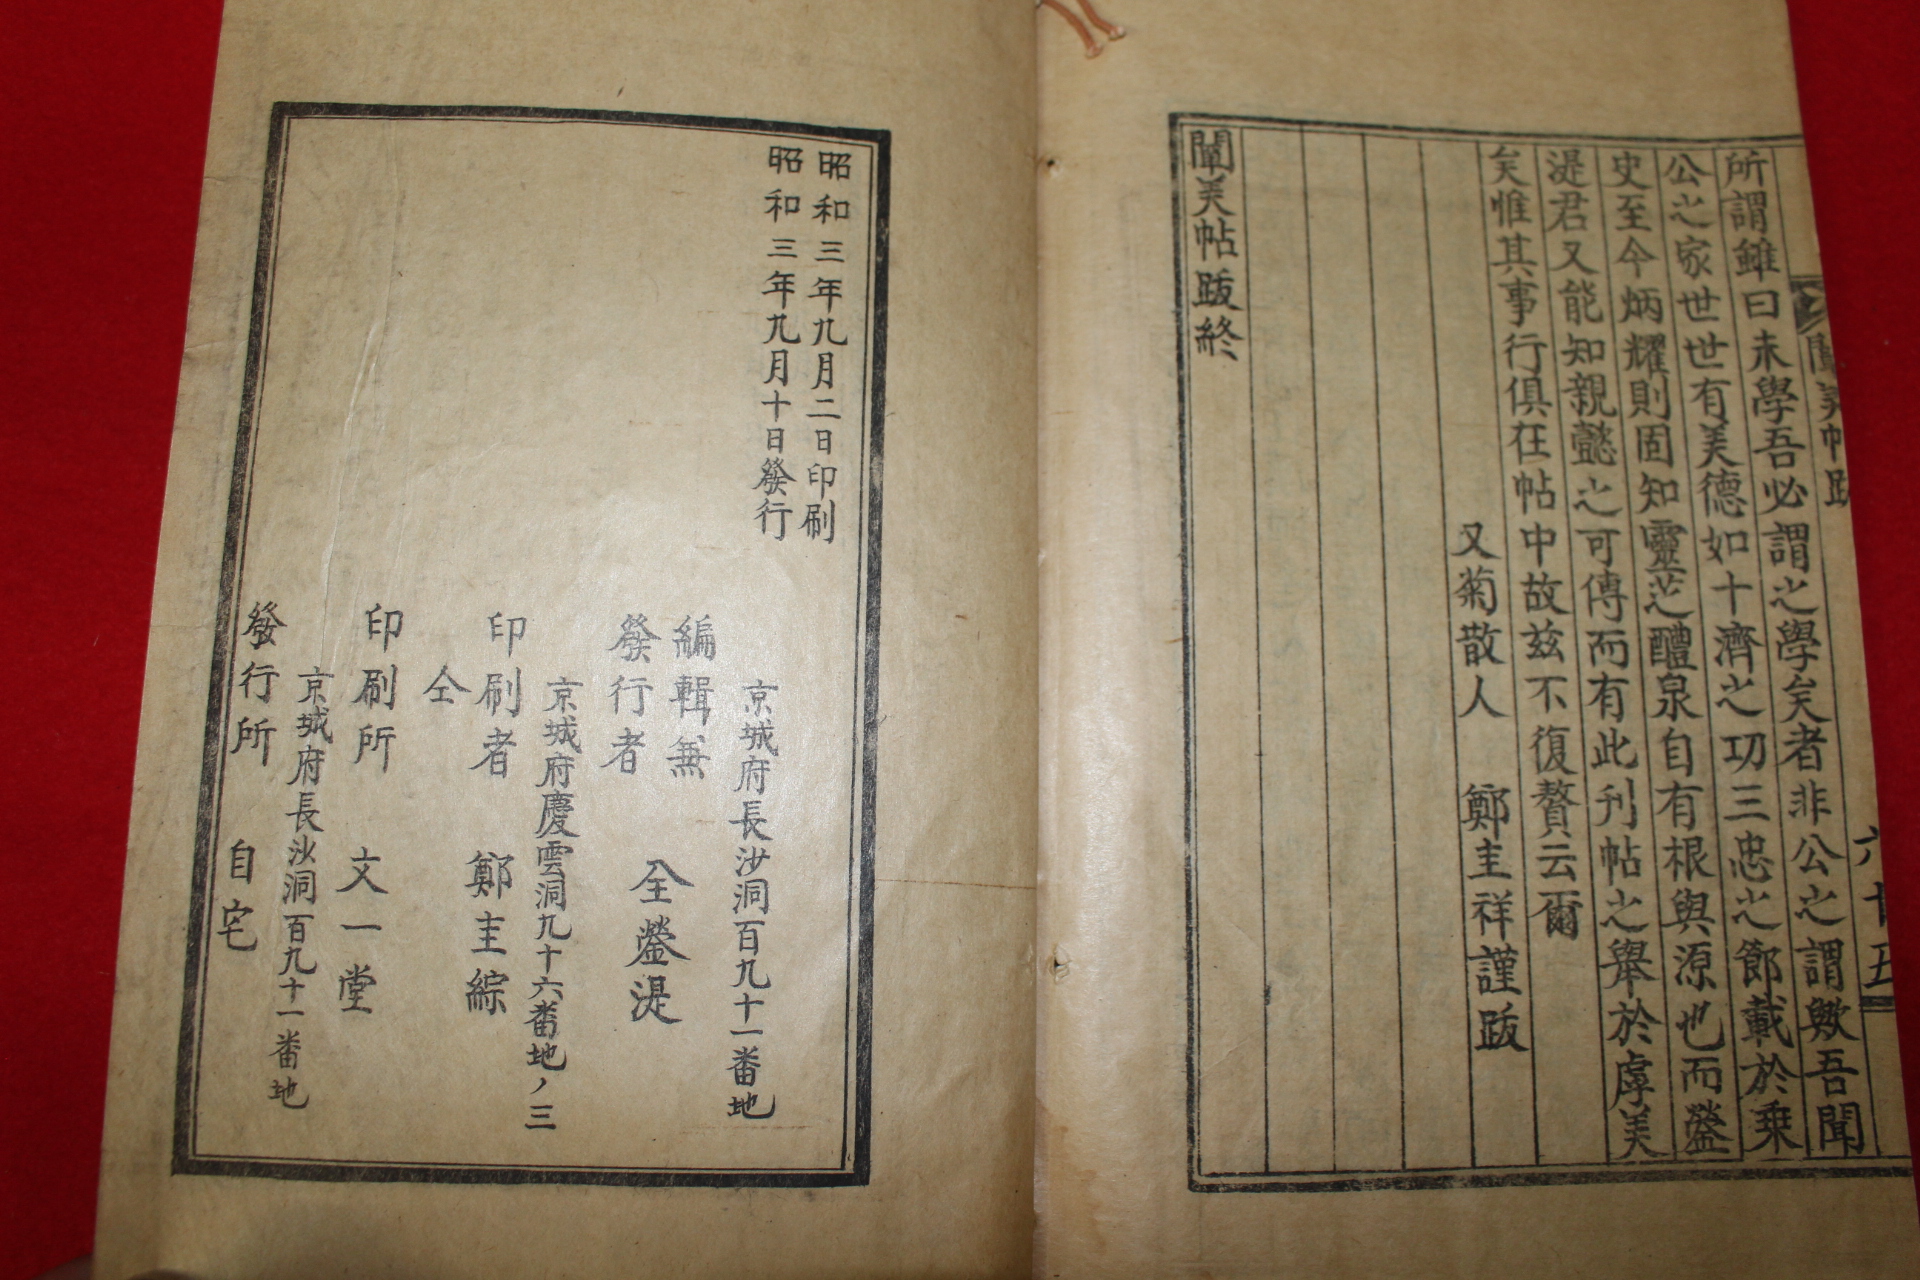 所謂雖曰未學吾必謂之學矣者非公之謂歟吾聞
公之家世世有美德如十濟之功三忠之節載於乘
史至今炳耀則固知靈芝醴泉自有根與源也而瑩
湜君又能知親懿之可傳而有此刊帖之舉於虖美
矣惟其事行俱在帖中故玆不復贅云爾
又菊散人 鄭圭祥謹跋
闡美帖跋終
闡美帖跋 六十五
昭和三年九月二日印刷
昭和三年九月十日發行
京城府長沙洞百九十一番地
編輯兼
發行者 全瑩湜
京城府慶雲洞九十六番地ノ三
印刷者 鄭圭綜
仝
印刷所 文一堂
京城府長沙洞百九十一番地
發行所 自宅